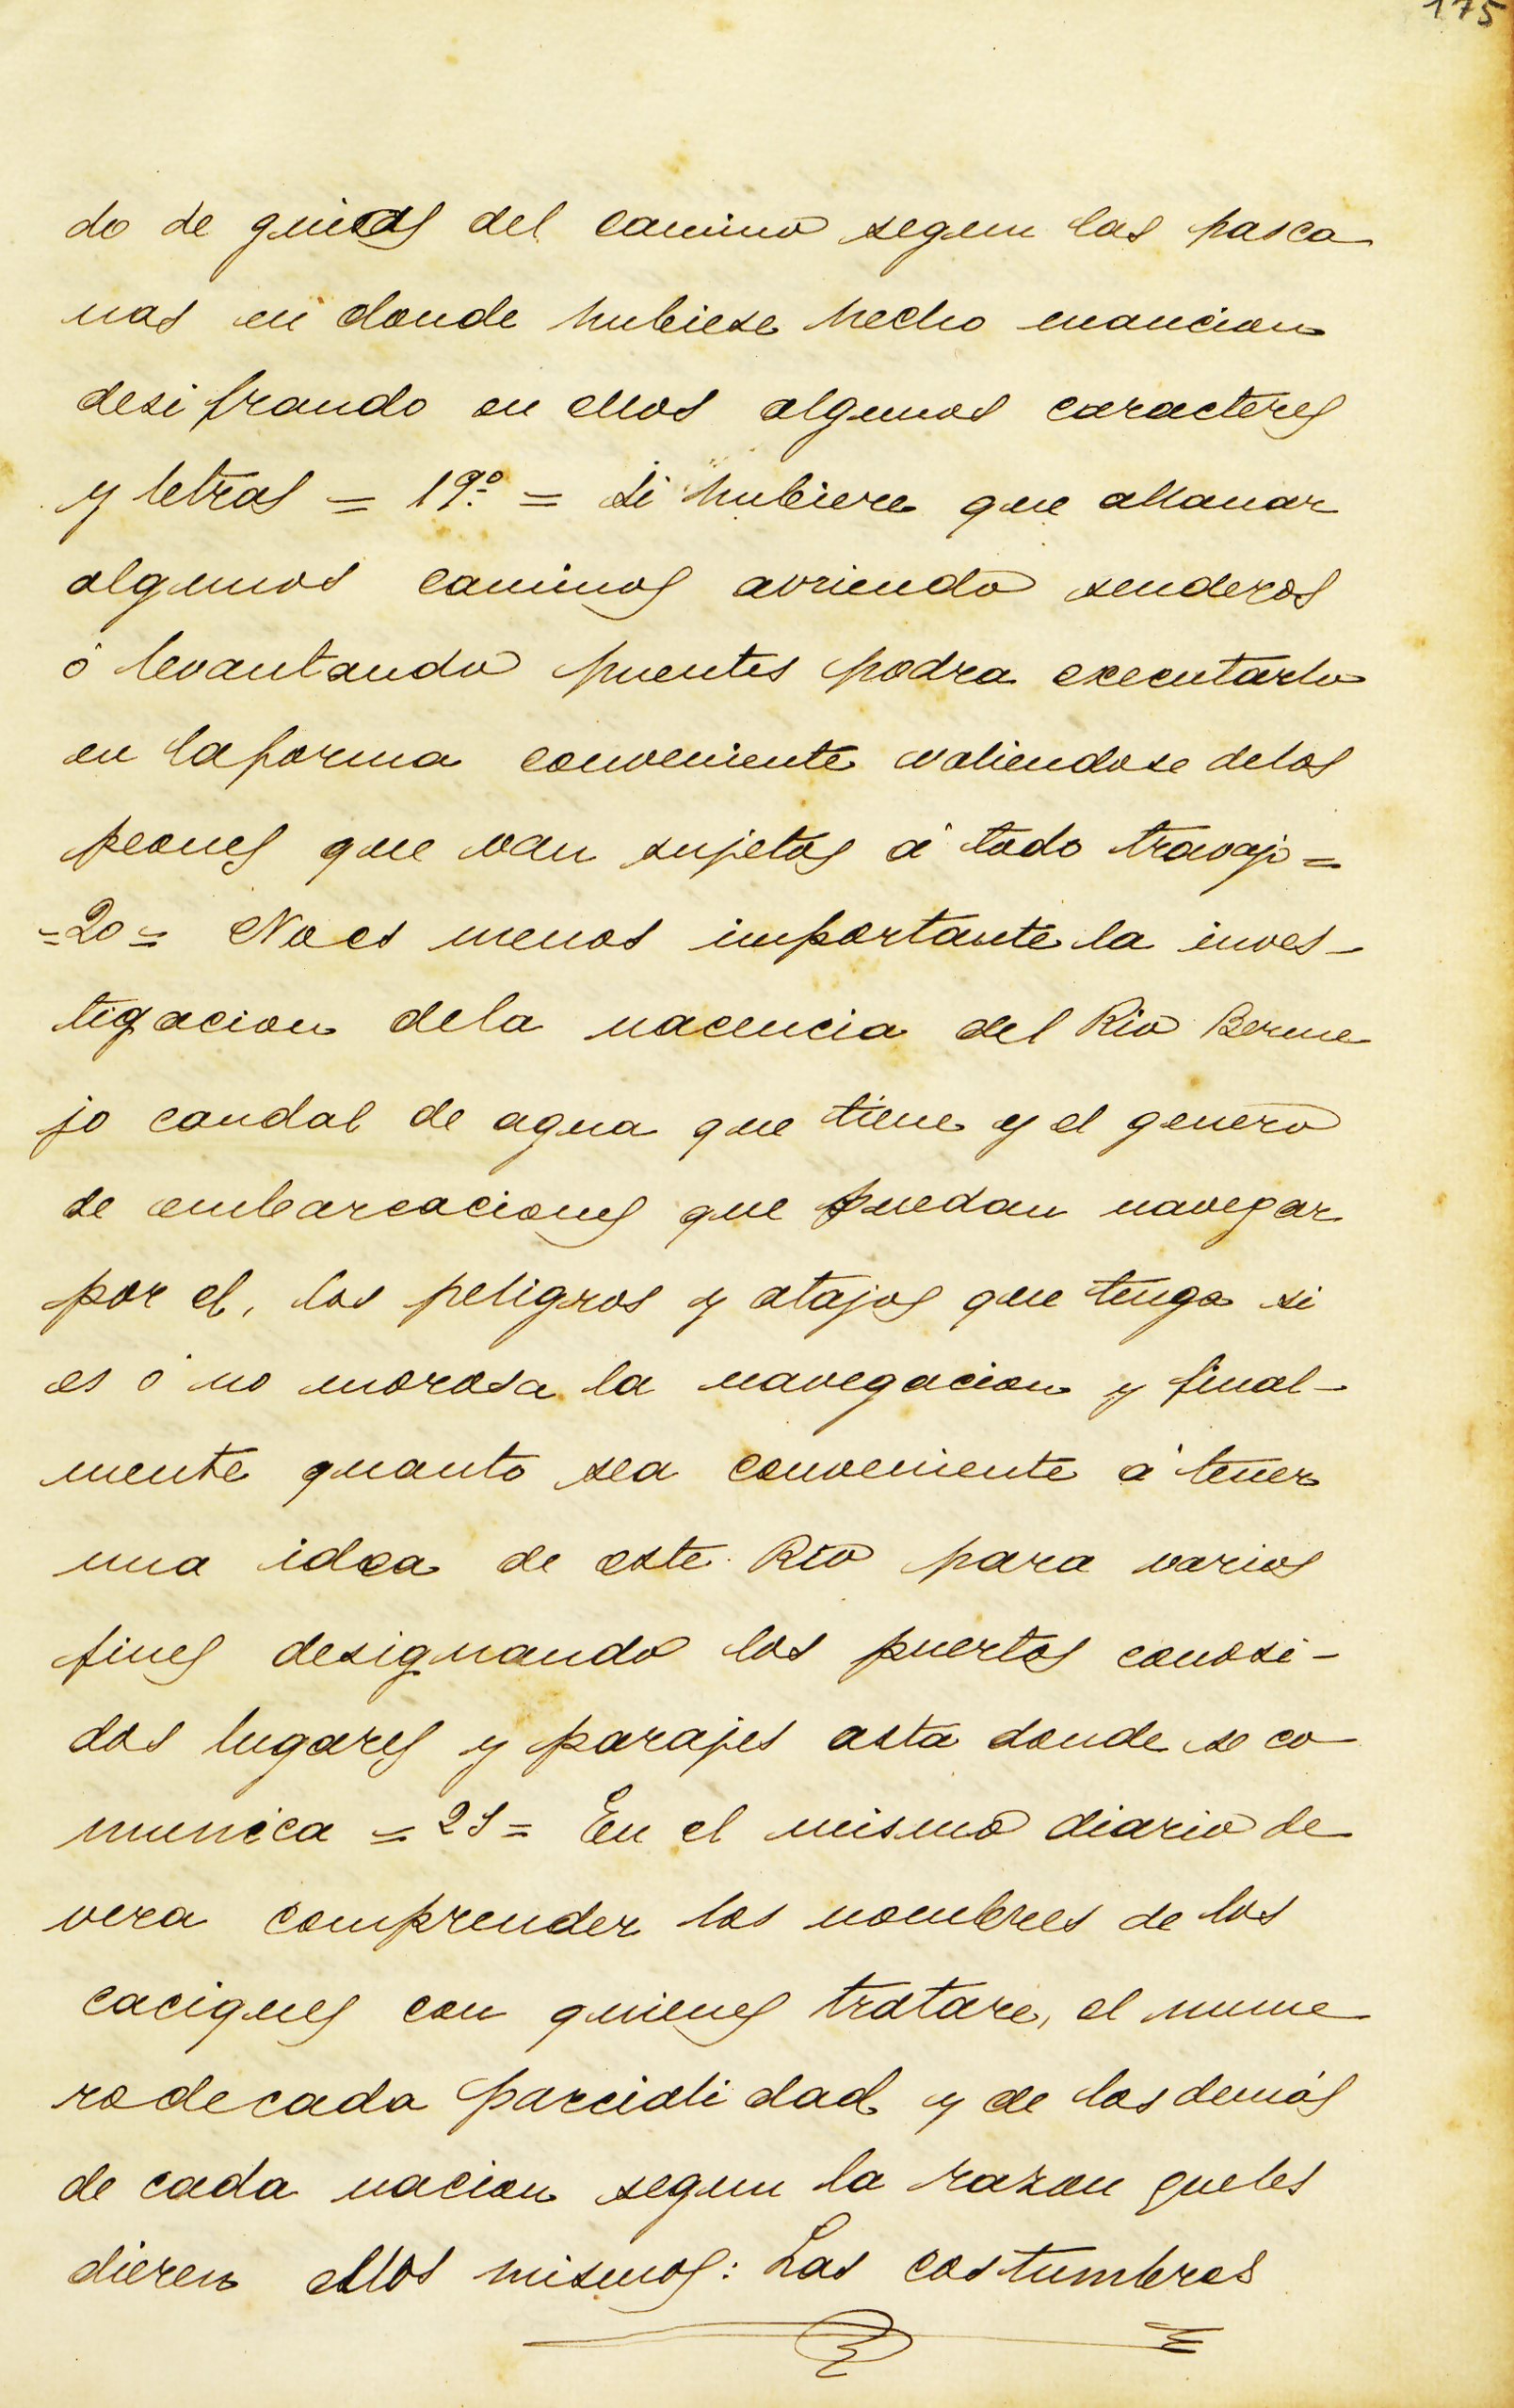 175
do de guias del camino segun las pasca
nas en donde hubiese hecho mancion
desifrando en ellos algunos caracteres
y letras = 19º = Si hubiere que allanar
algunos caminos avriendo senderos
ó levantando puentes podra executarlo
en laforma conveniente valiendose delos
peones que van sujetos á todo travajo =
=20= No es menos importante la inves-
tigacion dela nacencia del Rio Berme
jo caudal de agua que tiene y el genero
de embarcaciones que puedan navegar
por el, los peligros y atajos que tenga si
es ó no morosa la navegacion y final-
mente quanto sea conveniente á tener
una idea de este Rio para varios
fines designando los puertos conosi-
dos lugares y parajes asta donde se co
munica = 21 = En el mismo diario de
vera comprender los nombres de los
caciques con quienes tratare, el nume
ro de cada parcialidad y de los demás
de cada nacion segun la razon queles
dieren ellos mismos: Las costumbres